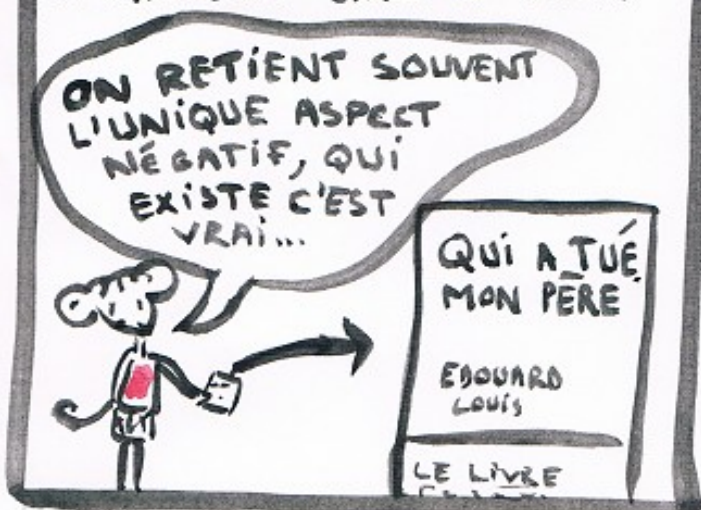 ON RETIENT SOUVENT
L'UNIQUE ASPECT
NÉGATIF, QUI
EXISTE C'EST
VRAI...
QUI A TUÉ
MON PÈRE
EDOUARD
LOUIS
LE LIVRE